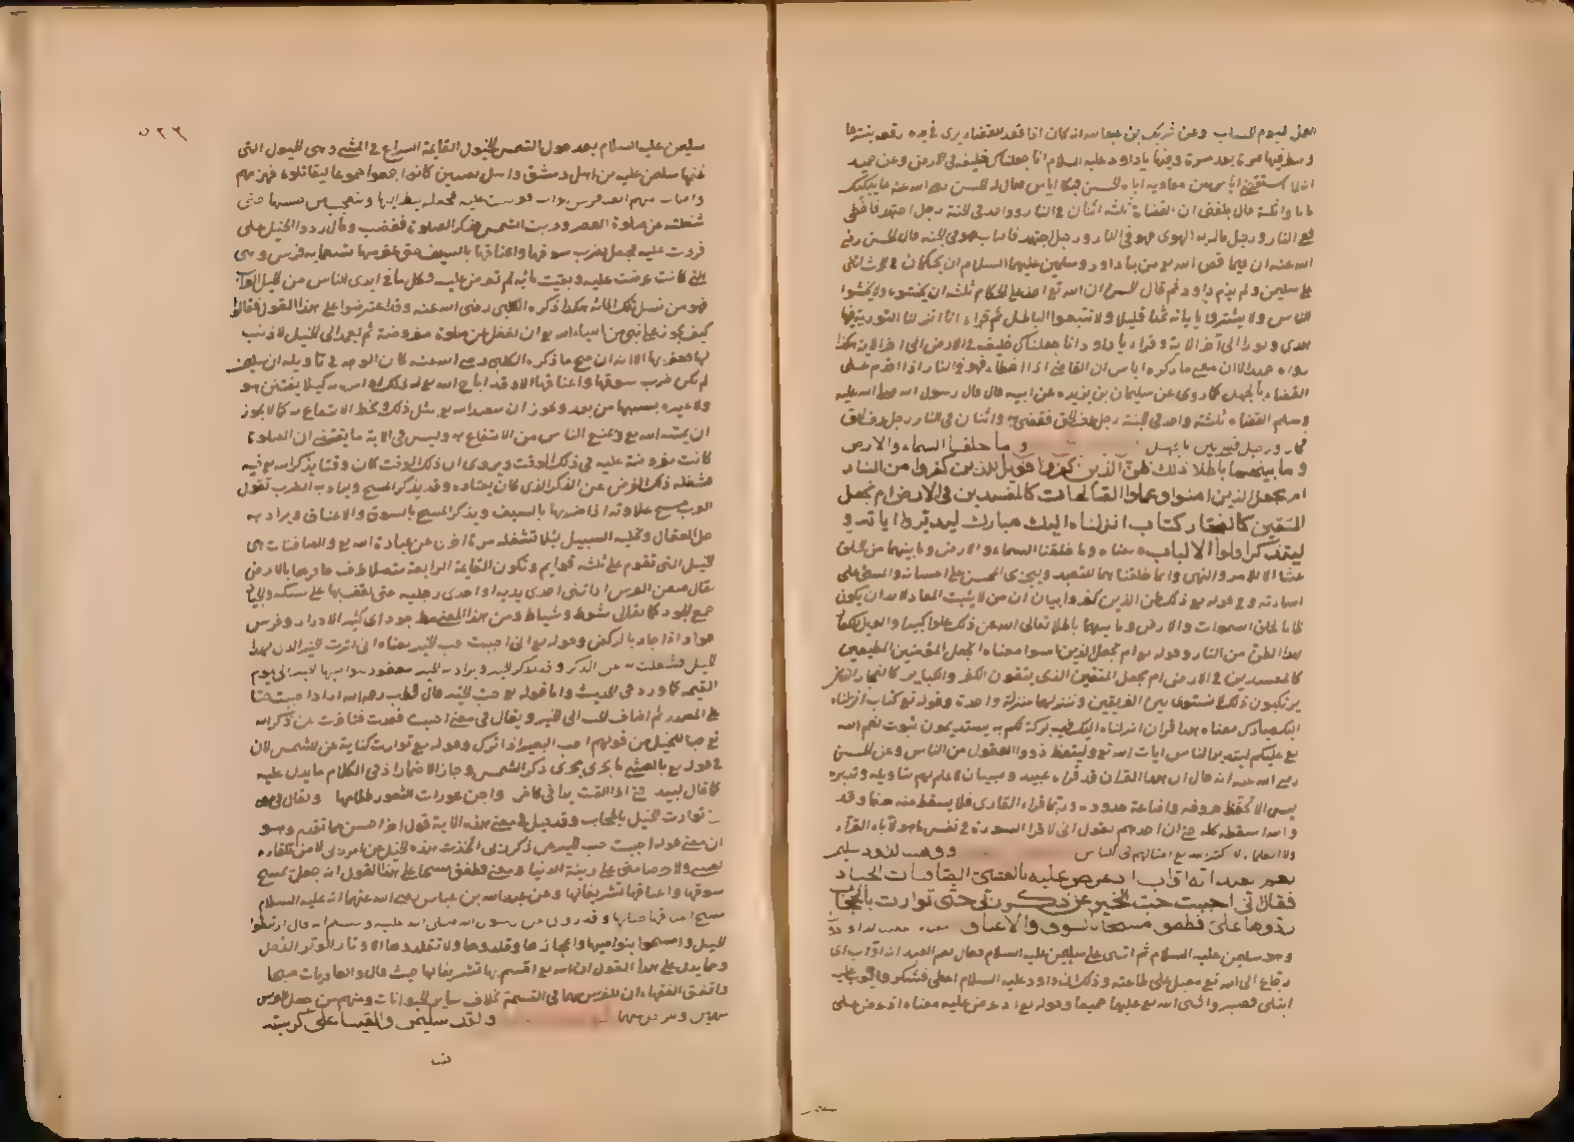 العدل ليوم الحساب وعن شريك بن عبد الله انه كان اذا قعد للقضاء يرى في يده رقعة ينشرها
وينظر فيها مرة بعد مرة وفيها يا داود عليه السلام انا جعلناك خليفة في الارض وعن حميد
اياس بن معاوية اياه الحسن فبكا اياس فقال له الحسن رحمه الله عنه ما يبكيك
يا با واثلة قال بلغني ان القضاة ثلثة اثنان في النار وواحد في الجنة رجل اجتهد فاخطى
فهو في النار ورجل مال به الهوى فهو في النار ورجل اجتهد فاصاب فهو في الجنة قال الحسن رضي
الله عنه ان فيما قص الله تع من نبأ داود وسليمن عليهما السلام ان يحكمان في الحرث اثنى
على سليمن ولم يذم داود ثم قال الحسن ان الله تع اخذ على الحكام ثلثة ان يخشوه ولا يخشوا
الناس ولا يشتروا باياته ثمنا قليلا ولا تتبعوا الباطل ثم قراء انا انزلنا التورية فيها
هدى ونور الى آخر الاية وقراء يا داود انا جعلناك خليفة في الارض الى اخر الاية هكذا
رواه حميد الا ان معنى ما ذكره اياس ان القاضي اذا اخطاء فهو في النار اذا اقدم على
القضاء بالجهل كما روى عن سليمان بن بريدة عن ابيه قال قال رسول الله صلى الله عليه
وسلم القضاة ثلثة واحد في الجنة رجل عرف الحق فقضى به واثنان في النار رجل عرف الحق
فجار ورجل قضى بين بجهل وما خلقنا السماء والارض
وما بينهما باطلا ذلك ظن الذين كفروا فويل للذين كفروا من النار
ام نجعل الذين امنوا وعملوا الصالحات كالمفسدين في الارض ام نجعل
المتقين كالفجار كتاب انزلناه اليك مبارك ليدبروا اياته و
ليتذكر اولوا الالباب معناه وما خلقنا السماء والارض وما بينهما من الخلق
عبثا الا للامر والنهي وانما خلقناهما للتعبد ويجزى المحسن على احسانه والمسئ على
اساءته وفي قوله تع ذلك ظن الذين كفروا بيان ان من لا يثبت المعاد لابد ان يكون
ظانا لخلق السموات والارض وما بينهما باطلا تعالى الله عن ذلك علوا كبيرا والويل لكفار
هذا الظن من النار وقوله تع ام نجعل الذين امنوا معناه انجعل المؤمنين المطيعين
كالمفسدين في الارض ام نجعل المتقين الذي يتقون الكفر والكباير كالفجار
يرتكبون ذلك فنسوى بين الفريقين وننزلهما منزلة واحدة وقوله تع كتاب انزلناه
اليك مبارك معناه هذا قران انزلناه اليك فيه بركة لكم به يستديمون ثبوت نعم الله
تع عليكم ليتدبر الناس ايات الله تع وليتعظ ذووا العقول من الناس وعن الحسن
رحمه الله عنه انه قال ان هذا القران قد قراه عبيد وصبيان لا علم لهم بتاويله وتدبره
ليس الا بحفظ حروفه واضاعة حدوده وربما قراه القارى فلا يسقط منه حرفا وقد
والله اسقطه كله حتى ان احدهم ليقول انى لاقرا السورة في نفس ما هولاء بالقراء
ولا العلماء لا كثر الله تع امثالهم في الناس ووهبنا لداود سليمن
نعم العبد انه اواب اذ عرض عليه بالعشى الصافنات الجياد
فقال انى احببت حب الخير عن ذكر ربى حتى توارت بالحجاب
ردوها على فطفق مسحا بالسوق والاعناق معناه وهبنا لداود
وهو سليمن عليه السلام ثم اثنى على سليمن عليه السلام فقال نعم العبد انه اواب اى
رجاع الى الله تع مقبل على طاعته وذلك ان داود عليه السلام اعطى فشكر وايوب عليه
ابتلى فصبر واثنى الله تع عليهما جميعا وقوله تع اذ عرض عليه معناه اذ عرض على
٥٢٢
سليمن عليه السلام بعد حول الشمس الخيول القايمة السراع في المشى وهى الخيول التى
غنمها سليمن عليه من اهل دمشق واهل نصيبين كانوا جمعوا جموعا ليقاتلوه فهزمهم
واصاب منهم الف فرس عراب فعرضت عليه فجعل ينظر اليها ويتعجب من حسنها حتى
شغلته عن صلوة العصر وغربت الشمس فذكر الصلوة فغضب وقال ردوا الخيل على
فردت عليه فجعل يضرب سوقها واعناقها بالسيف حتى عقر منها تسعمائة فرس وهى
التى كانت عرضت عليه وبقيت مائة لم تعرض عليه فكل ما في ايدى الناس من الخيل العراب
فهو من نسل تلك المائة هكذا ذكره الكلبي رضى الله عنه وقد اعترضوا على هذا القول فقالوا
كيف يجوز على نبى من انبياء الله تع ان يغفل عن صلوة مفروضة ثم يعمد الى الخيل لا ذنب
لها فيعقرها الا انه ان صح ما ذكره الكلبي رحمه الله عنه كان الوجه في تاويله ان سليمن
لم يكن ضرب سوقها واعناقها الا وقد اباح الله تع له ذلك لكيلا يفتتن هو
ولا غيره بسببها من بعد ويجوز ان يتعبد الله تع بمثل ذلك ويحظر الانتفاع به كما لا يجوز
ان يميته الله تع ويمنع الناس من الانتفاع به وليس في الاية ما يقتضى ان الصلوة
كانت مفروضة عليه في ذلك الوقت ويروى ان ذلك الوقت كان وقتا يذكر الله تع فيه
فشغله ذلك العرض عن الذكر الذى كان يعتاده وقد يذكر المسح ويراد به الضرب تقول
العرب مسح علاوته اذا ضربها بالسيف ويذكر المسح بالسوق والاعناق ويراد به
حل العقال وتخلية السبيل لئلا تشغله مرة اخرى عن عبادة الله تع والصافنات هى
الخيل التى تقوم على ثلثة قوايم وتكون القايمة الرابعة متصلا طرف حافرها بالارض
يقال صفن الفرس اذا ثنى احدى يديه او احدى رجليه حتى يقف بها على سنبكه والجياد
جمع الجود كما يقال سوط وسياط ومن هذا المعنى مطر جود اى كثير الادرار وفرس
جواد اذا جاد بالركض وقوله تع انى احببت حب الخير معناه انى اثرت الخير الذى بهذا
الخيل فشغلت به عن الذكر وقد يذكر الخير ويراد به الخيل معقود بنواصيها الخير الى يوم
القيمة كما ورد في الحديث واما قوله تع حب الخير قال قطرب رحمه الله اراد احببت حبا
على المصدر ثم اضاف الحب الى الخير ويقال في معنى احببت قعدت فتاخرت عن ذكر الله
تع حبا للخيل من قولهم احب البعير اذا برك وقوله تع توارت كناية عن الشمس لان
في قوله تع بالعشى ما يجرى مجرى ذكر الشمس وجاز الاضمار اذا في الكلام ما يدل عليه
كما قال لبيد حتى اذا القت يدا في كافر واجن عورات الثغور ظلامها ويقال في معنى
توارت الخيل بالحجاب وقد قيل في معنى هذه الاية قول اخر احسن مما تقدم وهو
ان معنى قوله احببت حب الخير عن ذكر ربى اتخذت هذه الخيل عن امر ربى لا من تلقاء
نفسى ولا حرصا منى على زينة الدنيا ومعنى فطفق مسحا على هذا القول انه جعل يمسح
سوقها واعناقها تشريفا لها وعن عبد الله بن عباس رضى الله عنهما انه عليه السلام
مسح اعرافها وقد روى عن رسول الله صلى الله عليه وسلم انه قال ارتبطوا
الخيل وامسحوا بنواصيها واعجازها وقلدوها ولا تقلدوها الاوتار
ومما يدل على هذا القول ان الله تع اقسم بها تشريفا لها حيث قال والعاديات ضبحا
واتفق الفقهاء ان للفرس سهما في القسمة بخلاف ساير الحيوانات ومنهم من جعل للفرس
سهمين ولقد فتنا سليمن والقينا على كرسيه